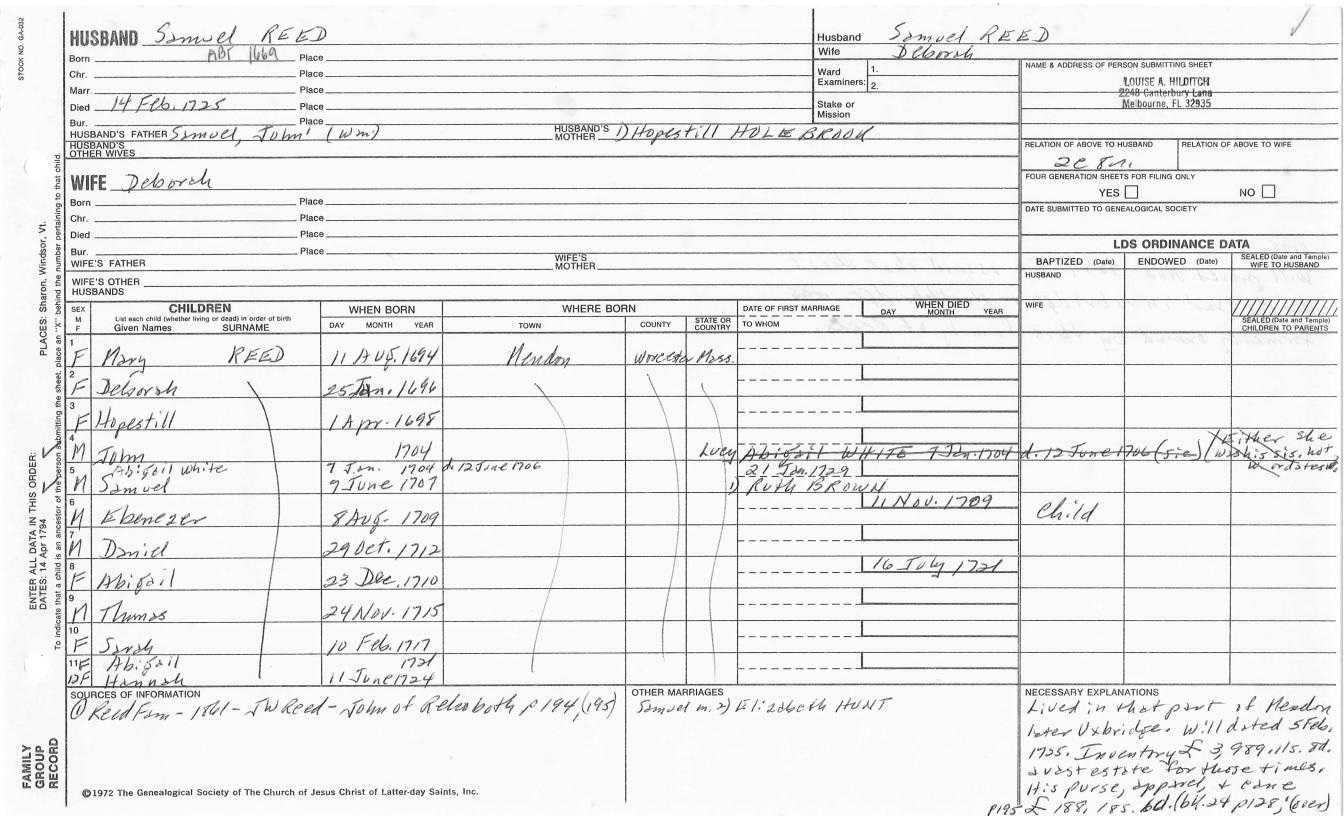 STOCK NO. GA-002
HUSBAND Samuel REED
Born ABT 1669 Place
Chr. Place
Marr. Place
Died 14 Feb. 1725 Place
Bur. Place
HUSBAND'S FATHER Samuel, John' (Wm) HUSBAND'S MOTHER 1) Hopestill HOLEBROOK
HUSBAND'S OTHER WIVES
WIFE Deborah
Born Place
Chr. Place
Died Place
Bur. Place
WIFE'S FATHER WIFE'S MOTHER
WIFE'S OTHER HUSBANDS
Husband Samuel REED
Wife Deborah
Ward Examiners: 1.
2.
Stake or Mission
NAME & ADDRESS OF PERSON SUBMITTING SHEET
LOUISE A. HILDITCH
2248 Canterbury Lane
Melbourne, FL 32935
RELATION OF ABOVE TO HUSBAND RELATION OF ABOVE TO WIFE
FOUR GENERATION SHEETS FOR FILING ONLY
YES NO
DATE SUBMITTED TO GENEALOGICAL SOCIETY
LDS ORDINANCE DATA
BAPTIZED (Date) ENDOWED (Date) SEALED (Date and Temple) WIFE TO HUSBAND
HUSBAND
WIFE
SEALED (Date and Temple) CHILDREN TO PARENTS
SEX M F
CHILDREN
List each child (whether living or dead) in order of birth
Given Names SURNAME
WHEN BORN
DAY MONTH YEAR
WHERE BORN
TOWN COUNTY STATE OR COUNTRY
DATE OF FIRST MARRIAGE
TO WHOM
WHEN DIED
DAY MONTH YEAR
1 F Mary REED 11 Aug. 1694 Mendon Worcester Mass.
2 F Deborah 25 Jan. 1696
3 F Hopestill 1 Apr. 1698
4 M John 1704 Lucy Abigail WHITE 7 Jan. 1704 d. 12 June 1706 (sic) (Either she
was his sis, not
w or dates
Abigail White 7 Jan. 1704 d. 12 June 1706 21 Jan. 1729
5 M Samuel 9 June 1707 1) Ruth BROWN
6 M Ebenezer 8 Aug. 1709 11 Nov. 1709 Child
7 M Daniel 29 Oct. 1712
8 F Abigail 23 Dec. 1710 16 July 1721
9 M Thomas 24 Nov. 1715
10 F Sarah 10 Feb. 1717
11 F Abigail 1721
12 F Hannah 11 June 1724
SOURCES OF INFORMATION
① Reed Fam - 1861 - JW Reed - John of Rehoboth p 194, (195)
OTHER MARRIAGES
Samuel m. 2) Elizabeth HUNT
NECESSARY EXPLANATIONS
Lived in that part of Mendon
later Uxbridge. Will dated 5 Feb.
1725. Inventory £ 3,989. 11s. 8d.
a vast estate for those times.
His purse, apparel, & cane
p195 £ 188, 18s. 6d. (bk. 24 p128, (over)
©1972 The Genealogical Society of The Church of Jesus Christ of Latter-day Saints, Inc.
FAMILY GROUP RECORD
ENTER ALL DATA IN THIS ORDER:
DATES: 14 Apr 1794
PLACES: Sharon, Windsor, Vt.
To indicate that a child is an ancestor of the person submitting the sheet, place an "X" behind the number pertaining to that child.